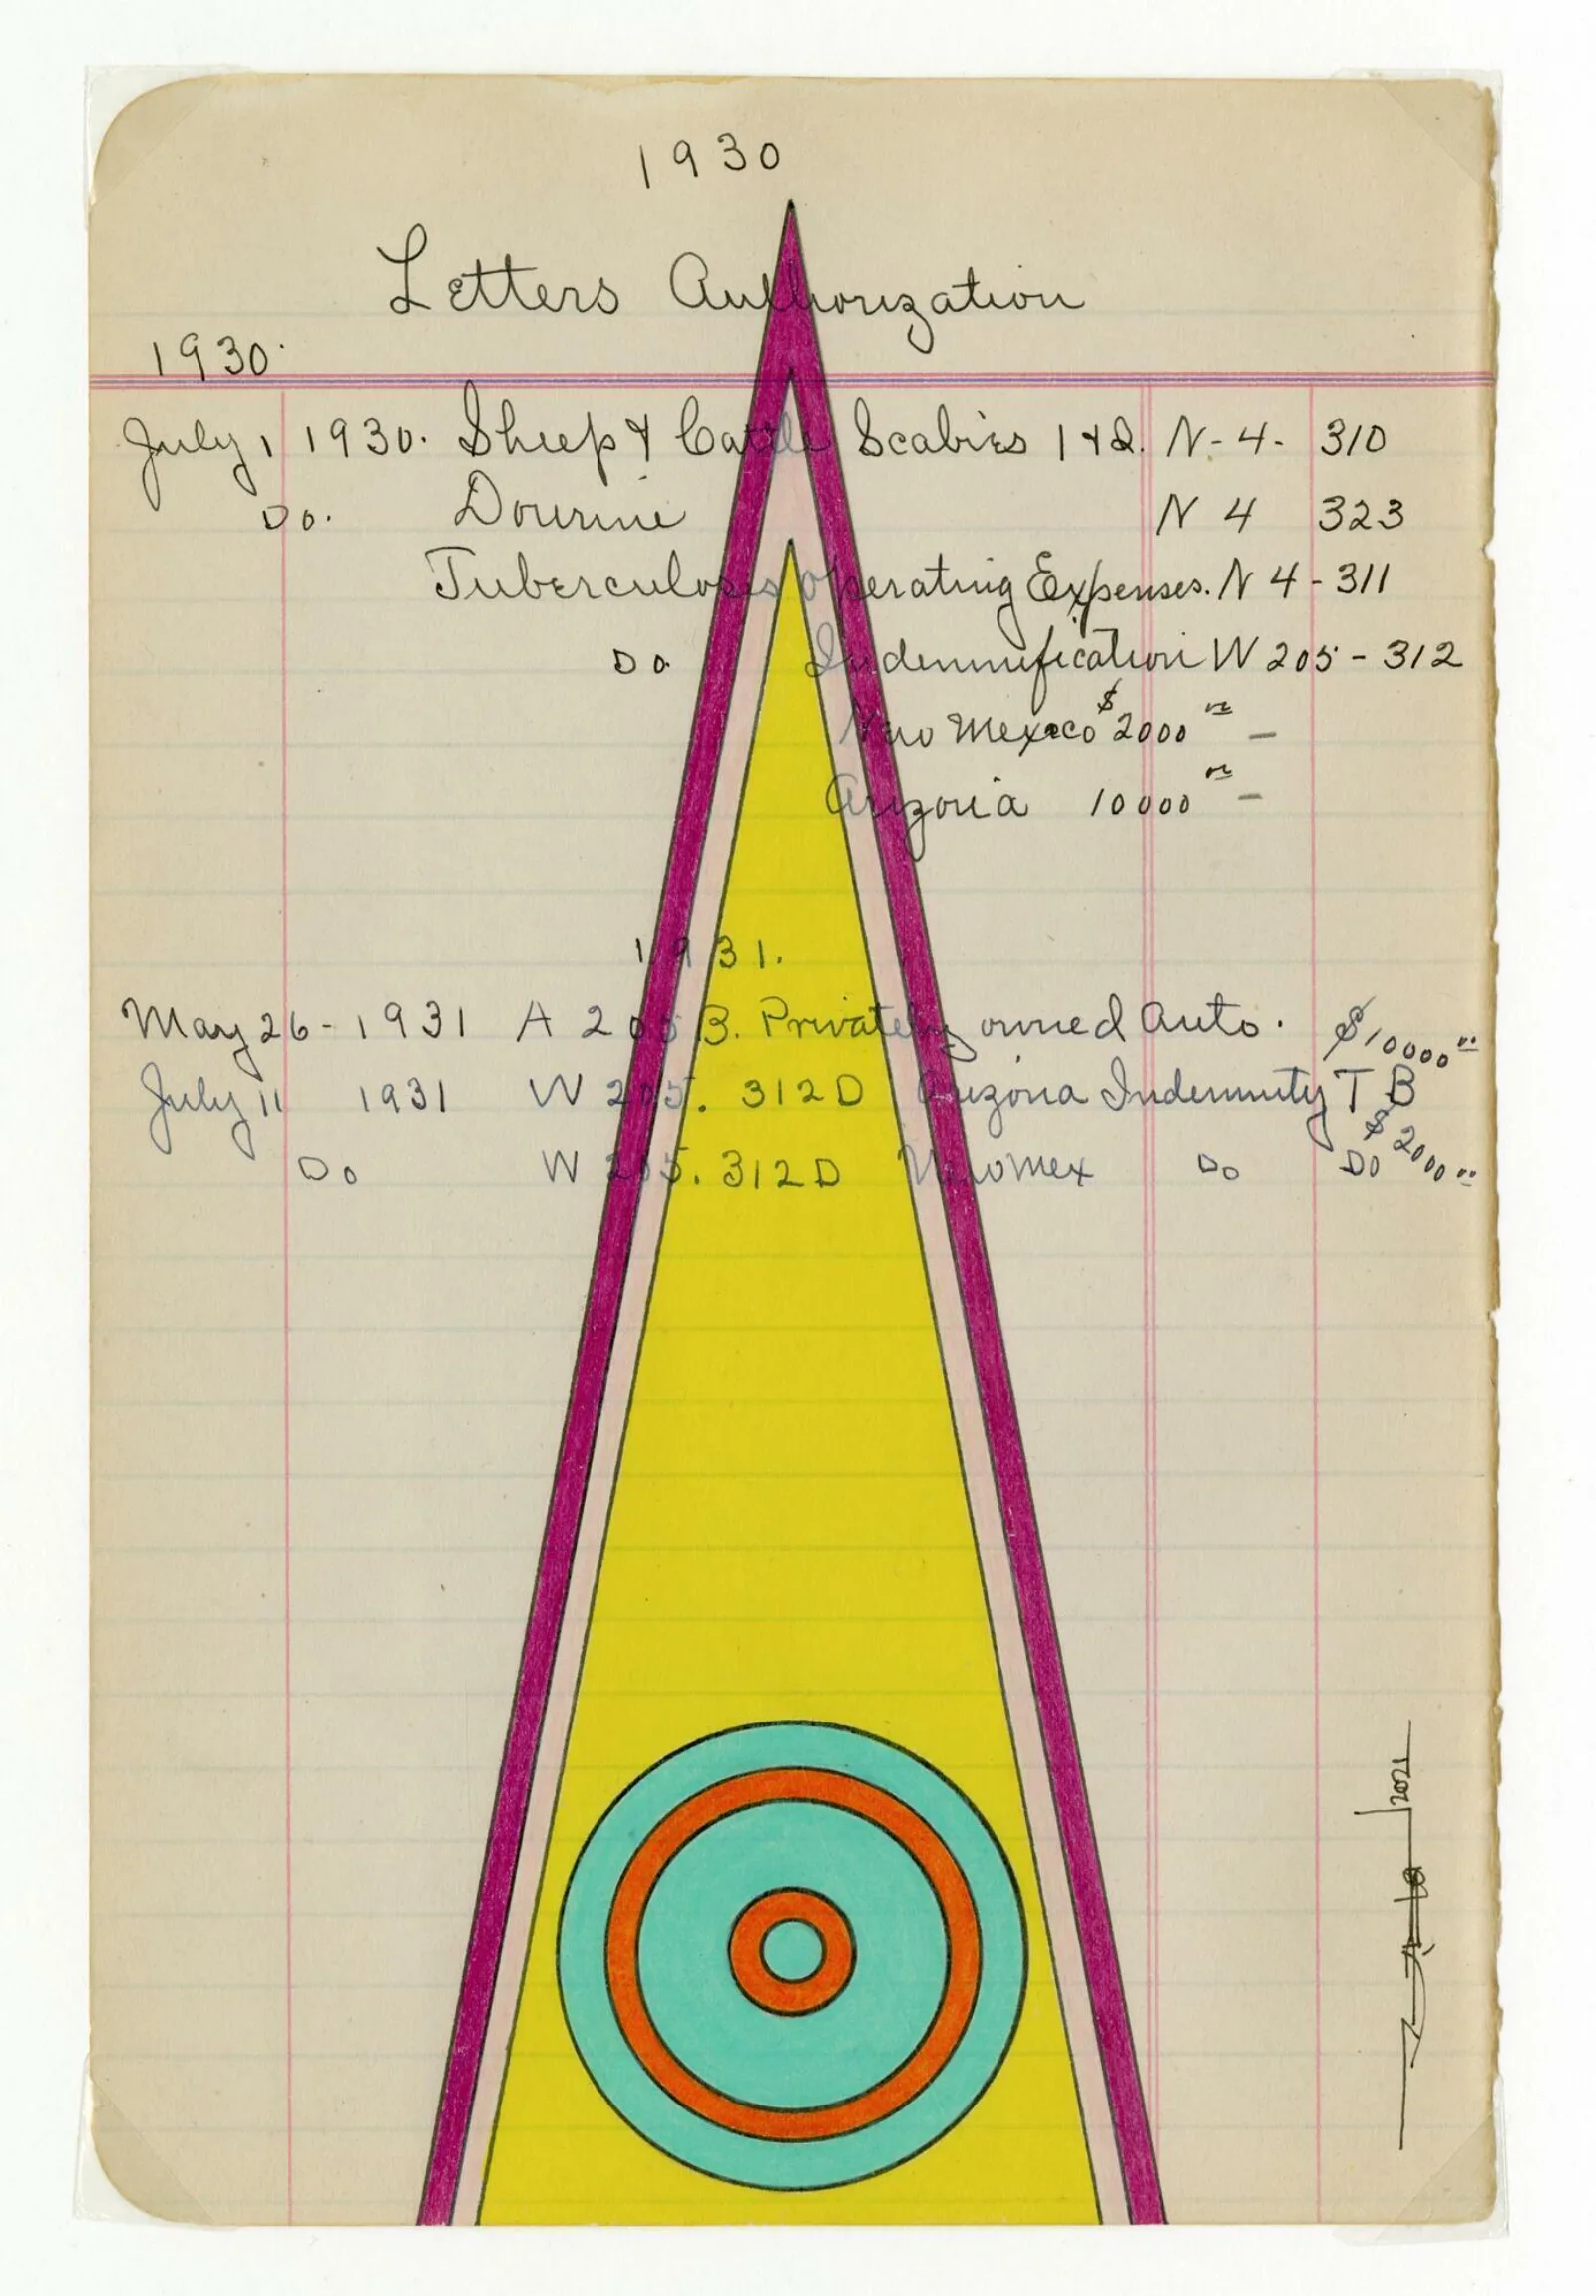 1930
Letters Authorization
1930.
July 1 1930. Sheep & Cattle Scabies 1 & 2. N-4- 310
Do. Dourine N 4 323
Tuberculosis Operating Expenses. N 4-311
Do Indemnification W 205-312
New Mexico $2000 00 –
Arizona 10000 00 –
1931.
May 26-1931 A 205 B. Privately owned Auto. $10000 00
July 11 1931 W 205. 312D Arizona Indemnity T B
$2000 00
Do W 205. 312D New Mex Do Do
2021